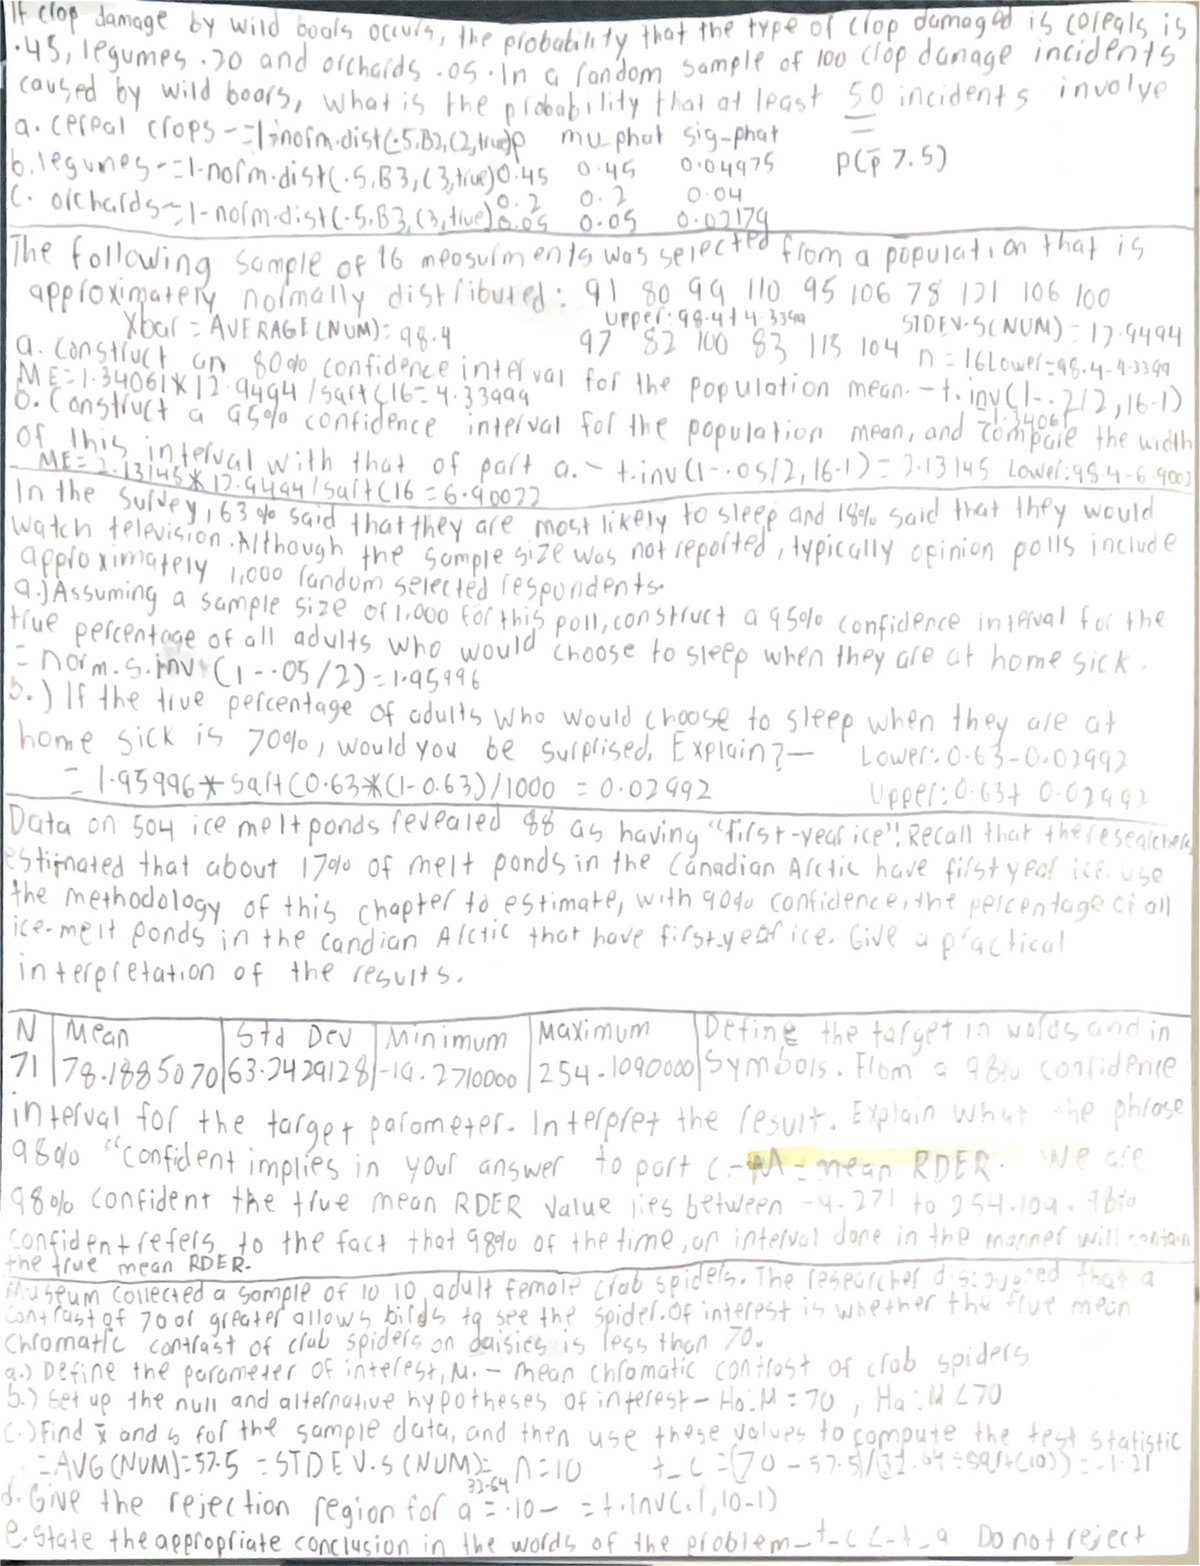 If crop damage by wild boars occurs, the probability that the type of crop damaged is cereals is
.45, legumes .20 and orchards .05. In a random sample of 100 crop damage incidents
caused by wild boars, what is the probability that at least 50 incidents involve
a. cereal crops -=1-norm.dist(.5,B2,C2,true) p mu_phat sig-phat
b. legumes -=1-norm.dist(.5,B3,C3,true) 0.45 0.45 0.04975 P(p̄ 7.5)
C. orchards~=1-norm.dist(.5,B3,C3,true) 0.2 0.2 0.04
0.05 0.05 0.02179
The following sample of 16 measurments was selected from a population that is
approximately normally distributed: 91 80 99 110 95 106 78 121 106 100
Xbar = AVERAGE(NUM)=98.4 Upper: 98.4+4.3399 STDEV.S(NUM)=12.9494
97 82 100 83 115 104 n=16 Lower=98.4-4.3399
a. Construct an 80% confidence interval for the population mean. - t.inv(1-.2/2,16-1)
ME=1.34061*12.9494/sqrt(16=4.33999 =1.34061
b. Construct a 95% confidence interval for the population mean, and compare the width
of this interval with that of part a. - t.inv(1-.05/2,16-1)=2.13145 Lower:98.4-6.9002
ME=2.13145*12.9494/sqrt(16=6.90022
In the survey, 63% said that they are most likely to sleep and 18% said that they would
watch television. Although the sample size was not reported, typically opinion polls include
approximately 1,000 random selected respondents.
a.) Assuming a sample size of 1,000 for this poll, construct a 95% confidence interval for the
true percentage of all adults who would choose to sleep when they are at home sick.
= norm.s.inv(1-.05/2)=1.95996
b.) If the true percentage of adults who would choose to sleep when they are at
home sick is 70%, would you be surprised. Explain?- Lower: 0.63-0.02992
= 1.95996*sqrt(0.63*(1-0.63)/1000 = 0.02992 Upper: 0.63+0.02992
Data on 504 ice melt ponds revealed 88 as having "first-year ice". Recall that the researchers
estimated that about 17% of melt ponds in the Canadian Arctic have first year ice. use
the methodology of this chapter to estimate, with 90% confidence, the percentage of all
ice-melt ponds in the candian Arctic that have first-year ice. Give a practical
interpretation of the results.
N Mean Std Dev Minimum Maximum Define the target in words and in
71 78.1885070 63.2429128 -19.2710000 254.1090000 Symbols. From a 98% confidence
interval for the target parameter. Interpret the result. Explain what the phrase
98% "confident implies in your answer to part C.- M = mean RDER. We are
98% confident the true mean RDER value lies between -9.271 to 254.109. 98%
confident refers to the fact that 98% of the time, an interval done in the manner will contain
the true mean RDER.
Museum collected a sample of 10 10 adult female crab spiders. The researcher discovered that a
contrast of 70 or greater allows birds to see the spider. Of interest is whether the true mean
chromatic contrast of crab spiders on daisies is less than 70.
a.) Define the parameter of interest, M. - mean chromatic contrast of crab spiders
b.) Set up the null and alternative hypotheses of interest - Ho:M=70, Ha:M<70
c.) Find x̄ and s for the sample data, and then use these values to compute the test statistic
=AVG(NUM)=57.5 =STDEV.S(NUM)= 32.64 n=10 t_c=(70-57.5)/(32.64÷sqrt(10))=-1.21
d. Give the rejection region for a=.10- =t.inv(.1,10-1)
e. State the appropriate conclusion in the words of the problem - t_c<-t_a Do not reject